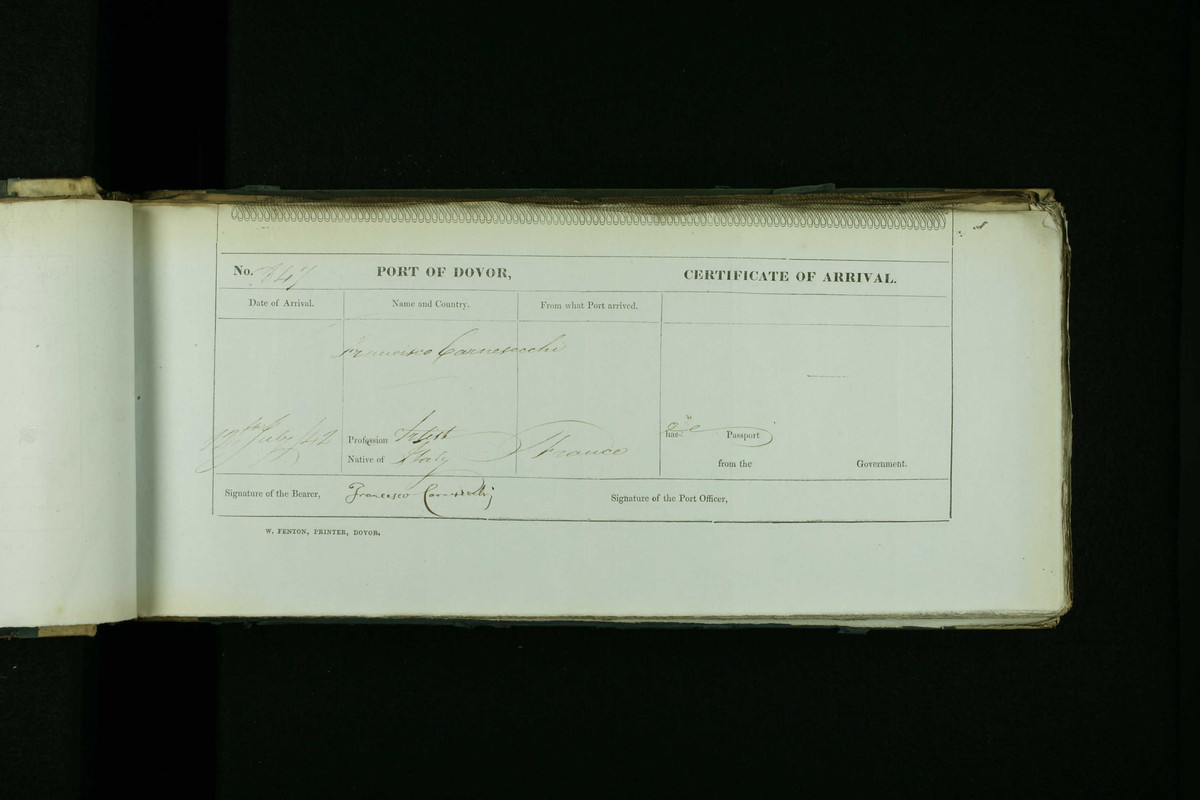 No. 347 PORT OF DOVOR, CERTIFICATE OF ARRIVAL.
Date of Arrival. Name and Country. From what Port arrived.
Francesco Carnesecchi
12th July /42 Profession Artist France has no Passport
Native of Italy from the Government.
Signature of the Bearer, Francesco Carnesecchi Signature of the Port Officer,
W. FENTON, PRINTER, DOVOR,